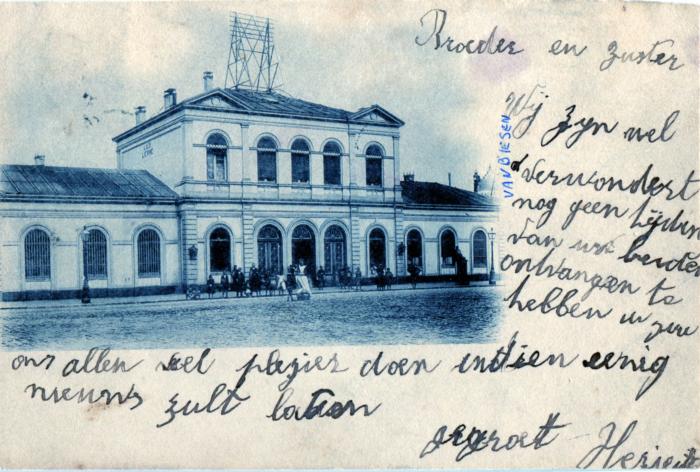 Broeder en zuster
Wij zyn wel
verwondert
nog geen tijding
van uw beiden
ontvangen te
hebben u zou
ons allen veel plezier doen indien eenig
nieuws zult laten
gegroet Heri
VAN BIESEN